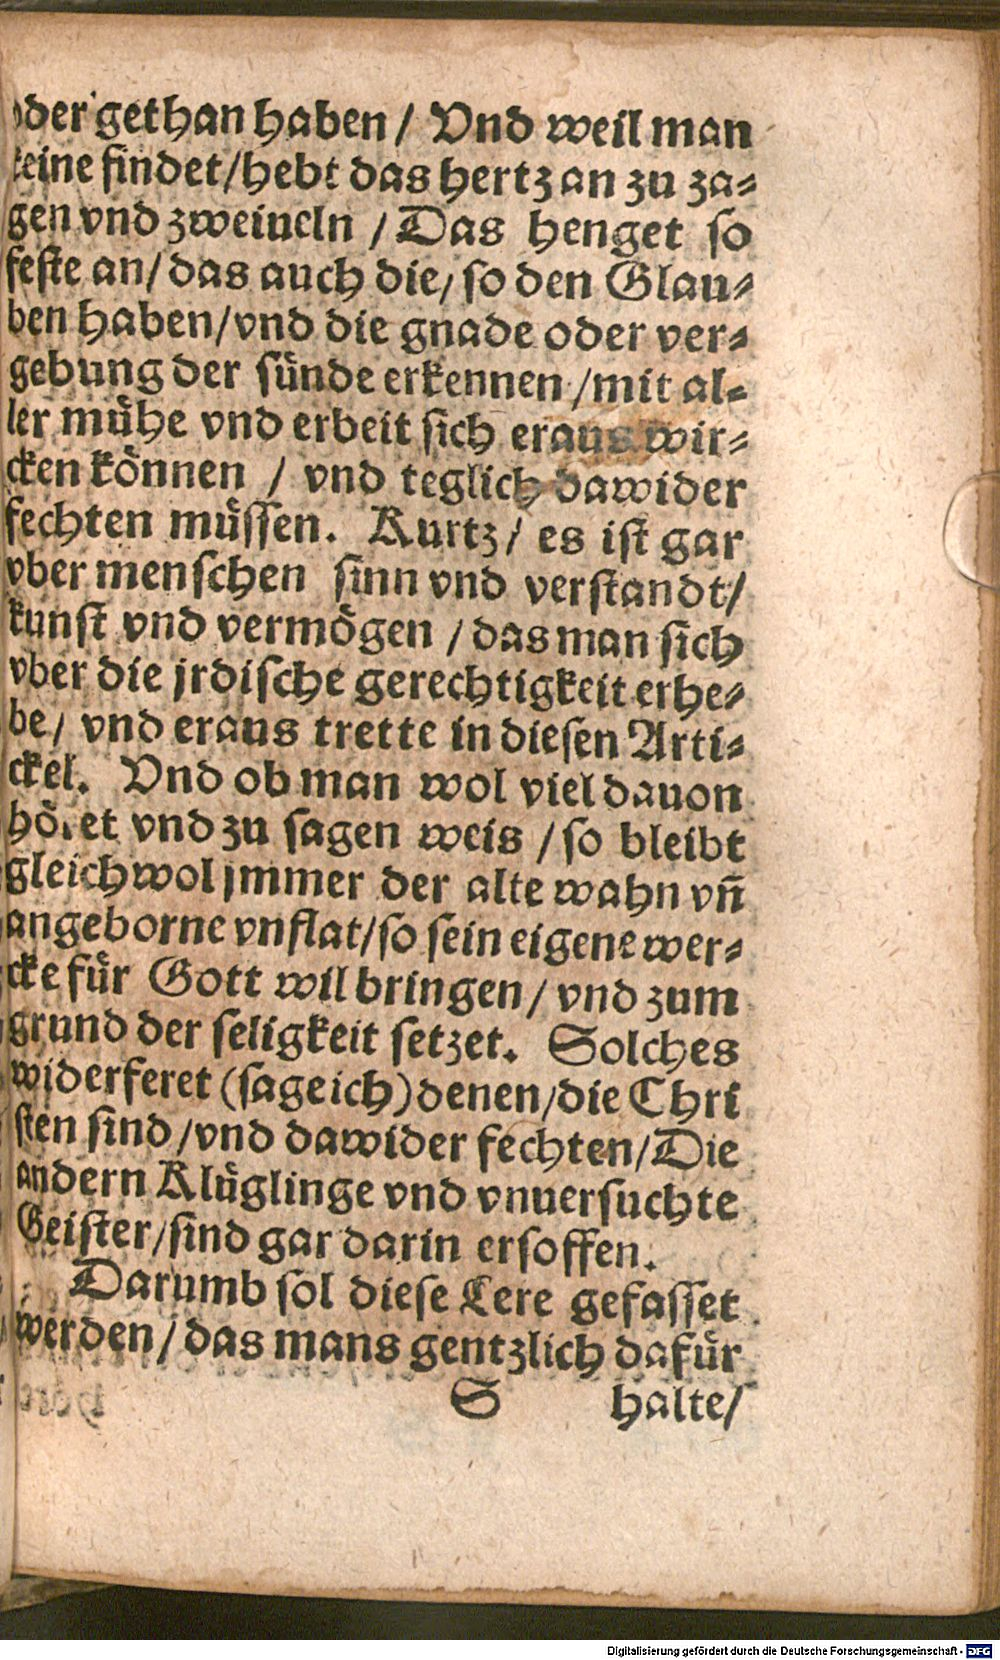 oder gethan haben / Vnd weil man
keine findet/hebt das hertz an zu za⸗
gen vnd zweiueln / Das henget so
feste an/ das auch die/ so den Glau⸗
ben haben/vnd die gnade oder ver⸗
gebung der sünde erkennen /mit al⸗
ler mühe vnd erbeit sich eraus wir⸗
cken können / vnd teglich dawider
fechten müssen. Kurtz/ es ist gar
vber menschen sinn vnd verstandt/
kunst vnd vermögen / das man sich
vber die jrdische gerechtigkeit erhe⸗
be/ vnd eraus trette in diesen Arti⸗
ckel. Vnd ob man wol viel dauon
höret vnd zu sagen weis / so bleibt
gleichwol jmmer der alte wahn vn̄
angeborne vnflat/so sein eigene wer⸗
cke für Gott wil bringen/ vnd zum
grund der seligkeit setzet. Solches
widerferet (sage ich) denen/die Chri
sten sind /vnd dawider fechten/Die
andern Klüglinge vnd vnuersuchte
Geister/sind gar darin ersoffen.
Darumb sol diese Lere gefasset
werden/ das mans gentzlich dafür
S halte/
Digitalisierung gefördert durch die Deutsche Forschungsgemeinschaft - DFG